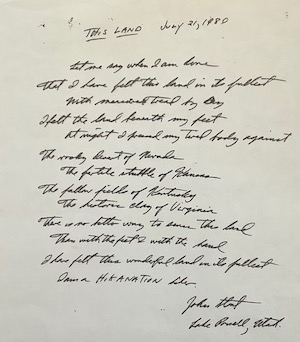 THIS LAND JULY 21, 1980
Let me say when I am done
That I have felt this land in its fullest
With measured tread by Day
I felt the land beneath my feet
At night I pressed my tired body against
The rocky desert of Nevada
The fertile stubble of Kansas
The fallow fields of Kentucky
The historic clay of Virginia
There is no better way to sense this land
Than with the feet & with the hand
I have felt this wonderful land in its fullest
I am a HIKANATION hiker
John
Lake Powell, Utah.